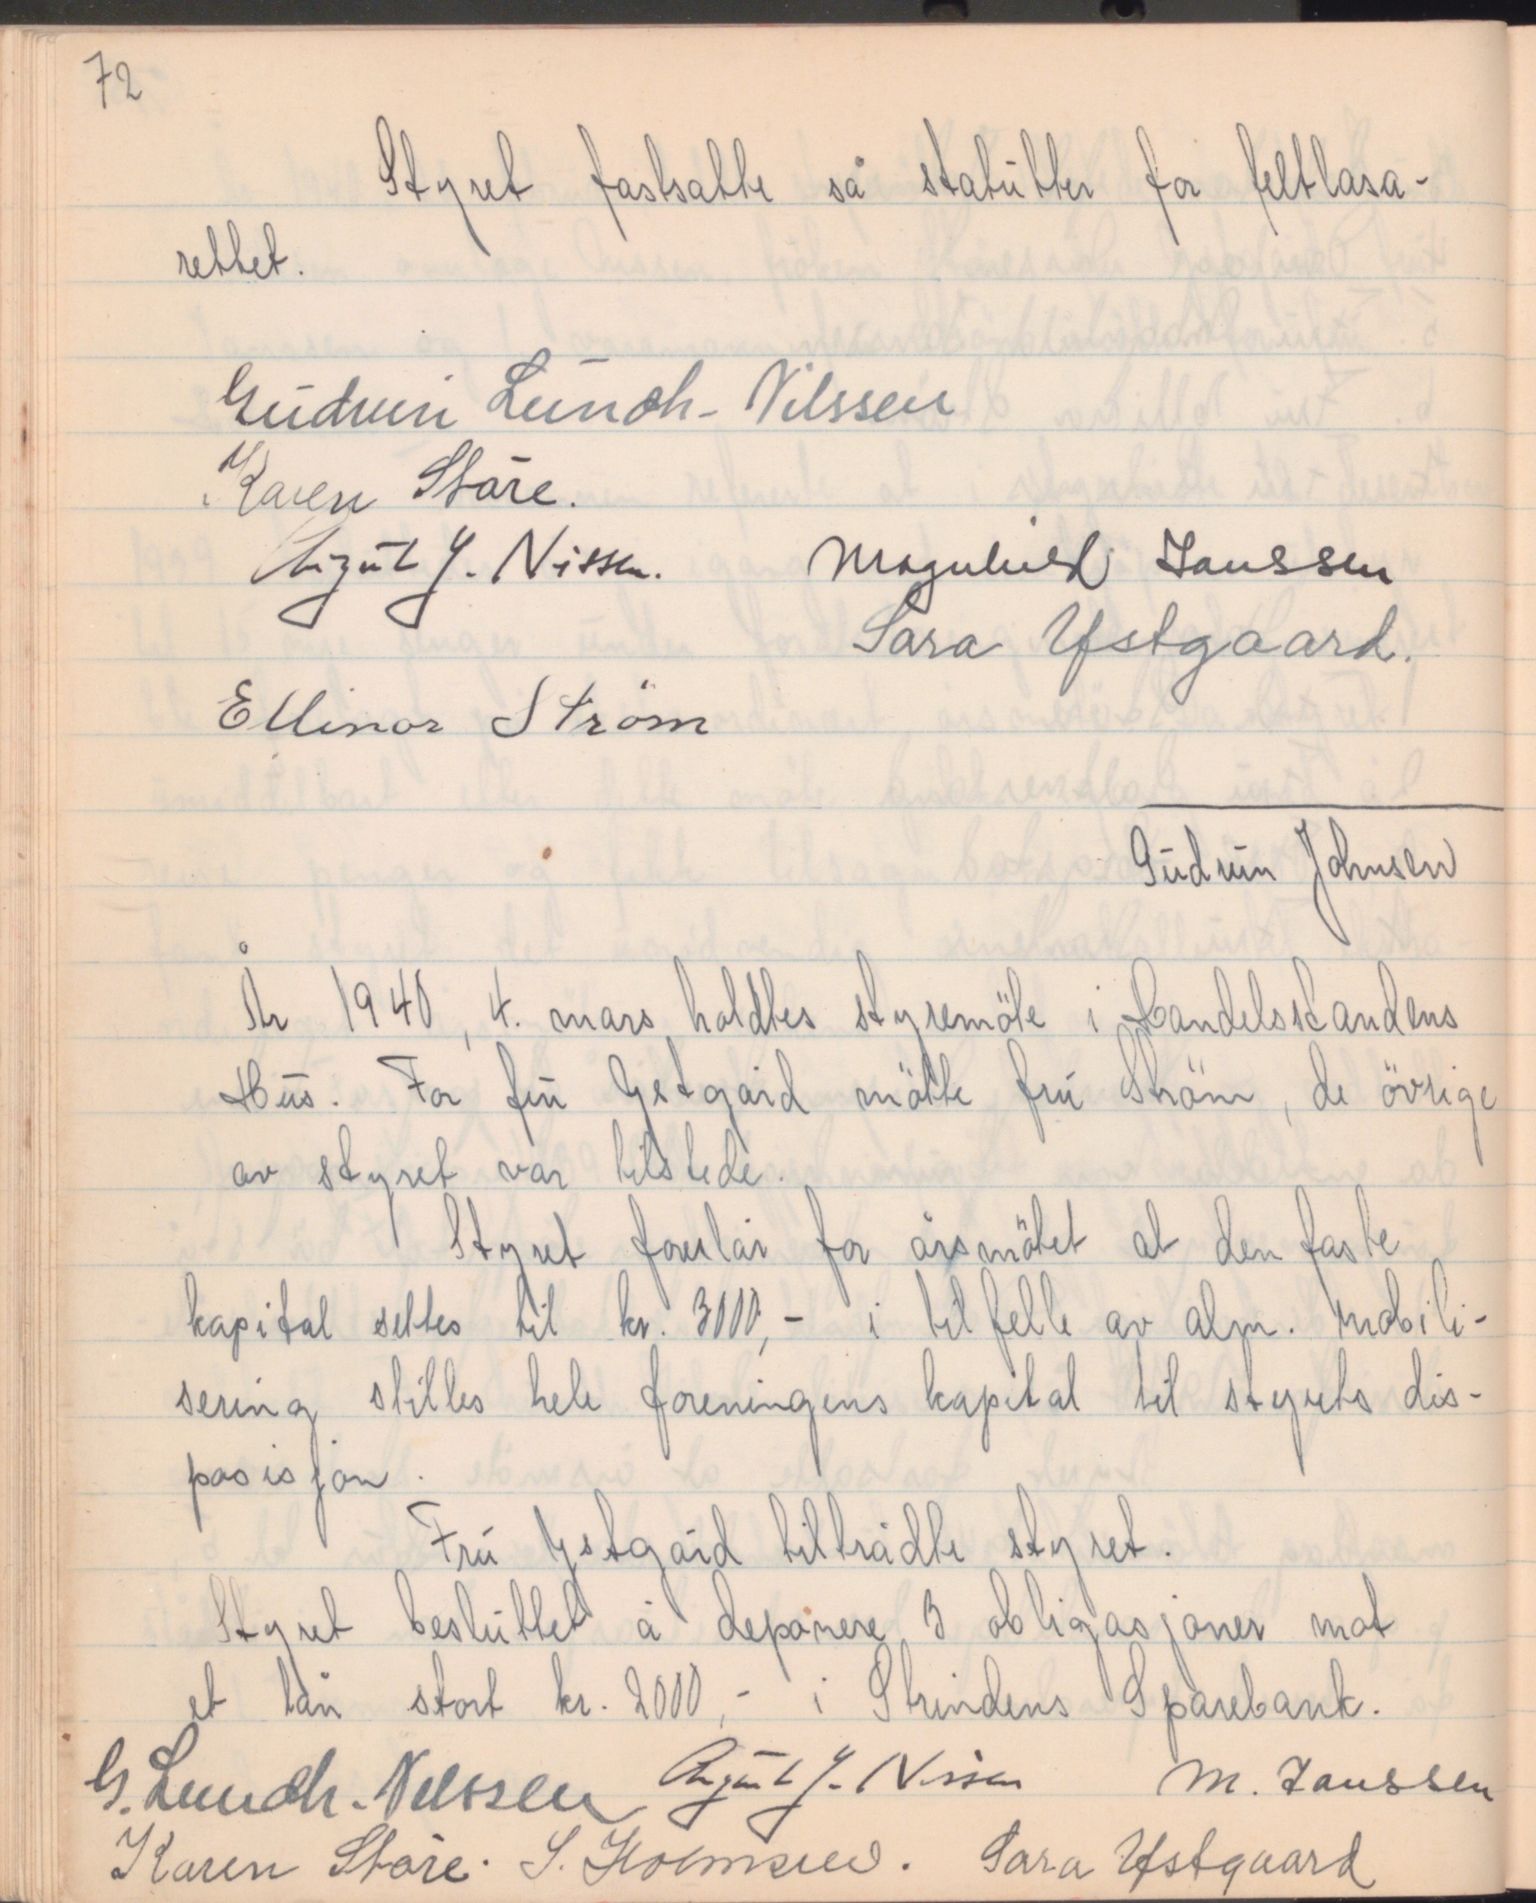 72
Styret fastsatte så statutter for feltlasa-
rettet.
Gudrun Lundh-Nilssen
Karen Støre.
August J. Nissen. Magnhild Janssen
Sara Ystgaard.
Ellinor Ström
Gudrun Johnsen
År 1940, 4. mars holdtes styremöte i Handelsstandens
Hus. For fru Ystgård mötte fru Ström, de övrige
av styret var tilstede.
Styret foreslår for årsmötet at den faste
kapital settes til kr. 3000,- i tilfelle av alm. mobili-
sering stilles hele foreningens kapital til styrets dis-
posisjon.
Fru Ystgård tiltrådte styret.
Styret besluttet å deponere 3 obligasjoner mot
et lån stort kr. 2000,- i Strindens Sparebank.
G. Lundh-Nilssen August J. Nissen M. Janssen
Karen Støre. S. Holmsen. Sara Ystgaard